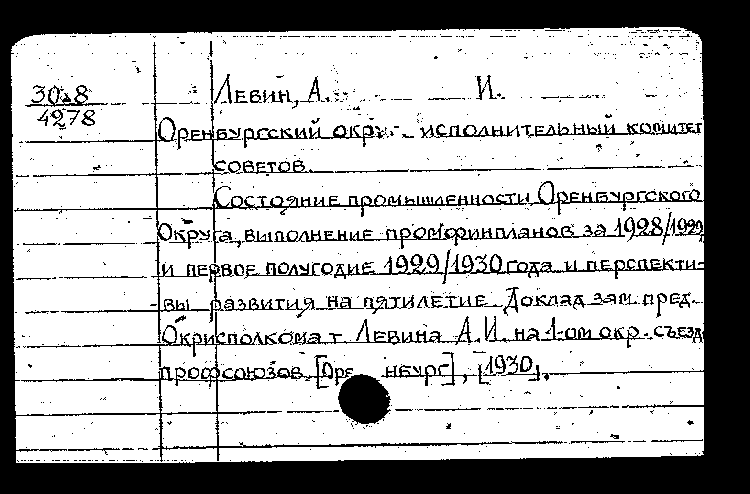 30-8 Левин, А. И.
4278
Оренбургский окр. исполнительный комитет
советов.
Состояние промышленности Оренбургского
Округа, выполнение промфинпланов за 1928/1929
и первое полугодие 1929/1930 года и перспекти-
вы развития на пятилетие. Доклад зам. пред.
Окрисполкома т. Левина А.И. на 1-ом окр. съезде
профсоюзов. [Оре нбург], [1930].